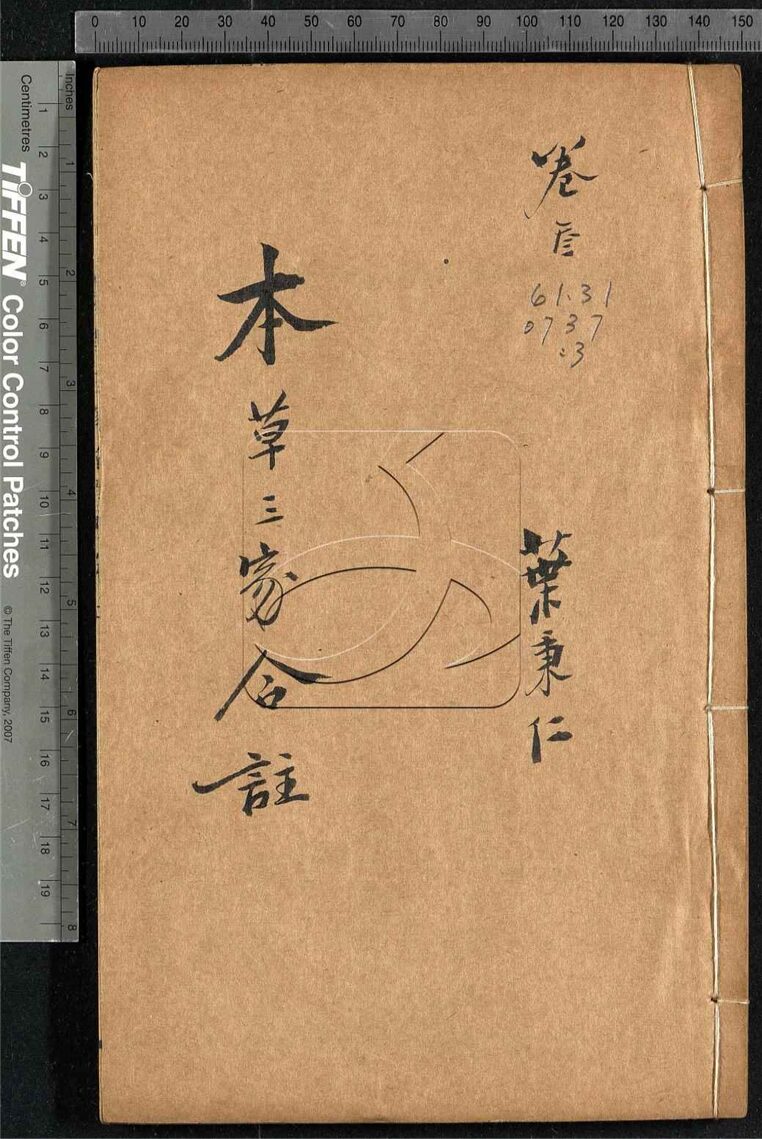 0 10 20 30 40 50 60 70 80 90 100 110 120 130 140 150
Inches
1 2 3 4 5 6 7 8
Centimetres
1 2 3 4 5 6 7 8 9 10 11 12 13 14 15 16 17 18 19
TIFFEN® Color Control Patches
© The Tiffen Company, 2007
卷
61.31
0737
:3
葉秉仁
本草三家合註